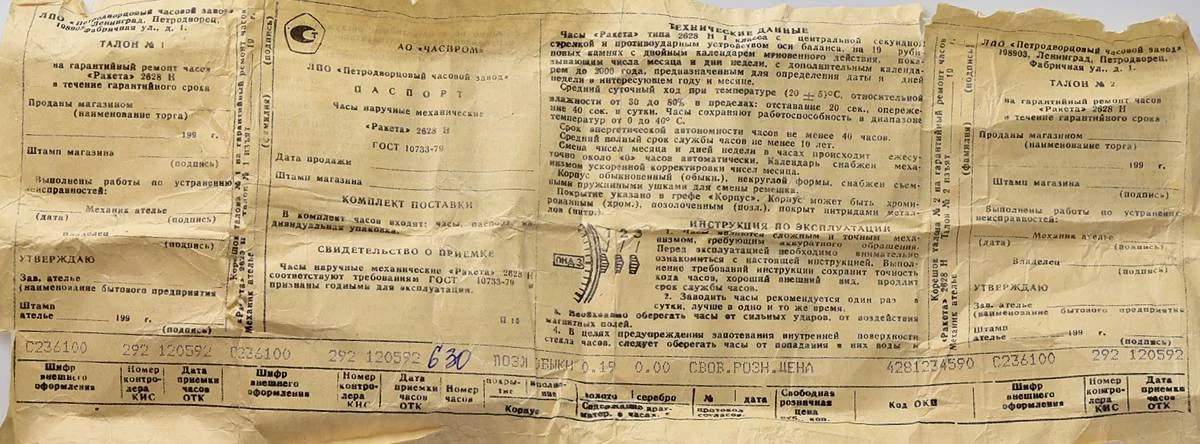 ЛПО «Петродворцовый часовой завод»
198903, Ленинград, Петродворец,
Фабричная ул., д. 1.
ТАЛОН № 1
на гарантийный ремонт часов
«Ракета» 2628 Н
в течение гарантийного срока
Проданы магазином
(наименование торга)
199 г.
Штамп магазина
(подпись)
Выполнены работы по устранению
неисправностей:
Механик ателье
(дата) (подпись)
Владелец
(подпись)
УТВЕРЖДАЮ
Зав. ателье
(наименование бытового предприятия
Штамп
ателье 199 г.
(подпись)
Корешок талона № 1 на гарантийный ремонт часов
«Ракета» 2628 Н Талон № 1 изъят 19 г.
Механик ателье
(фамилия) (подпись)
АО «ЧАСПРОМ»
ЛПО «Петродворцовый часовой завод»
ПАСПОРТ
Часы наручные механические
«Ракета» 2628 Н
ГОСТ 10733-79
Дата продажи
Штамп магазина
КОМПЛЕКТ ПОСТАВКИ
В комплект часов входят: часы, паспорт,
дивидуальная упаковка.
СВИДЕТЕЛЬСТВО О ПРИЕМКЕ
Часы наручные механические «Ракета» 2628 Н
соответствуют требованиям ГОСТ 10733-79
признаны годными для эксплуатации.
П 10
ТЕХНИЧЕСКИЕ ДАННЫЕ
Часы «Ракета» типа 2628 Н 1 класса с центральной секундной
стрелкой и противоударным устройством оси баланса, на 19 руби-
новых камнях с двойным календарем мгновенного действия, пока-
зывающим числа месяца и дни недели, с дополнительным календа-
рем до 2000 года, предназначенным для определения даты и дней
недели в интересующем году и месяце.
Средний суточный ход при температуре (20 ± 5)°С, относительной
влажности от 30 до 80% в пределах: отставание 20 сек, опереже-
ние 40 сек. в сутки. Часы сохраняют работоспособность в диапазоне
температур от 0 до 40°С.
Срок энергетической автономности часов не менее 40 часов.
Средний полный срок службы часов не менее 10 лет.
Смена чисел месяца и дней недели в часах происходит ежесу-
точно около «0» часов автоматически. Календарь снабжен меха-
низмом ускоренной корректировки чисел месяца.
Корпус обыкновенный (обыкн.), некруглой формы, снабжен съем-
ными пружинными ушками для смены ремешка.
Покрытие указано в графе «Корпус». Корпус может быть хроми-
рованным (хром.), позолоченным (позл.), покрыт нитридами метал-
лов (нитр.)
ИНСТРУКЦИЯ ПО ЭКСПЛУАТАЦИИ
1 2 3
1. Часы являются сложным и точным меха-
низмом, требующим аккуратного обращения.
Перед эксплуатацией необходимо внимательно
ознакомиться с настоящей инструкцией. Выпол-
нение требований инструкции сохранит точность
хода часов, хороший внешний вид, продлит
срок службы часов.
2. Заводить часы рекомендуется один раз в
сутки, лучше в одно и то же время.
3. Необходимо оберегать часы от сильных ударов, от воздействия
магнитных полей.
4. В целях предупреждения запотевания внутренней поверхности
стекла часов, следует оберегать часы от попадания в них воды и
Корешок талона № 2 на гарантийный ремонт часов
«Ракета» 2628 Н Талон № 2 изъят 19 г.
Механик ателье
(фамилия) (подпись)
ЛПО «Петродворцовый часовой завод»
198903, Ленинград, Петродворец,
Фабричная ул., д. 1.
ТАЛОН № 2
на гарантийный ремонт часов
«Ракета» 2628 Н
в течение гарантийного срока
Проданы магазином
(наименование торга)
199 г.
Штамп магазина
(подпись)
Выполнены работы по устранению
неисправностей:
Механик ателье
(дата) (подпись)
Владелец
(подпись)
УТВЕРЖДАЮ
Зав. ателье
(наименование бытового предприятия
Штамп
ателье 199 г.
(подпись)
С236100 292 120592 С236100 292 120592 630 ПОЗЛ ОБЫКН 0.19 0.00 СВОБ.РОЗН.ЦЕНА 4281234590 С236100 292 120592
Шифр внешнего оформления
Номер контролера КИС
Дата приемки часов ОТК
Шифр внешнего оформления
Номер контролера КИС
Дата приемки часов ОТК
Номер часов
Корпус
золото серебро
Содержание драг. матер. в часах, г
№ дата
протокол согласов.
Свободная розничная цена
руб. коп.
Код ОКП
Шифр внешнего оформления
Номер контролера КИС
Дата приемки часов ОТК